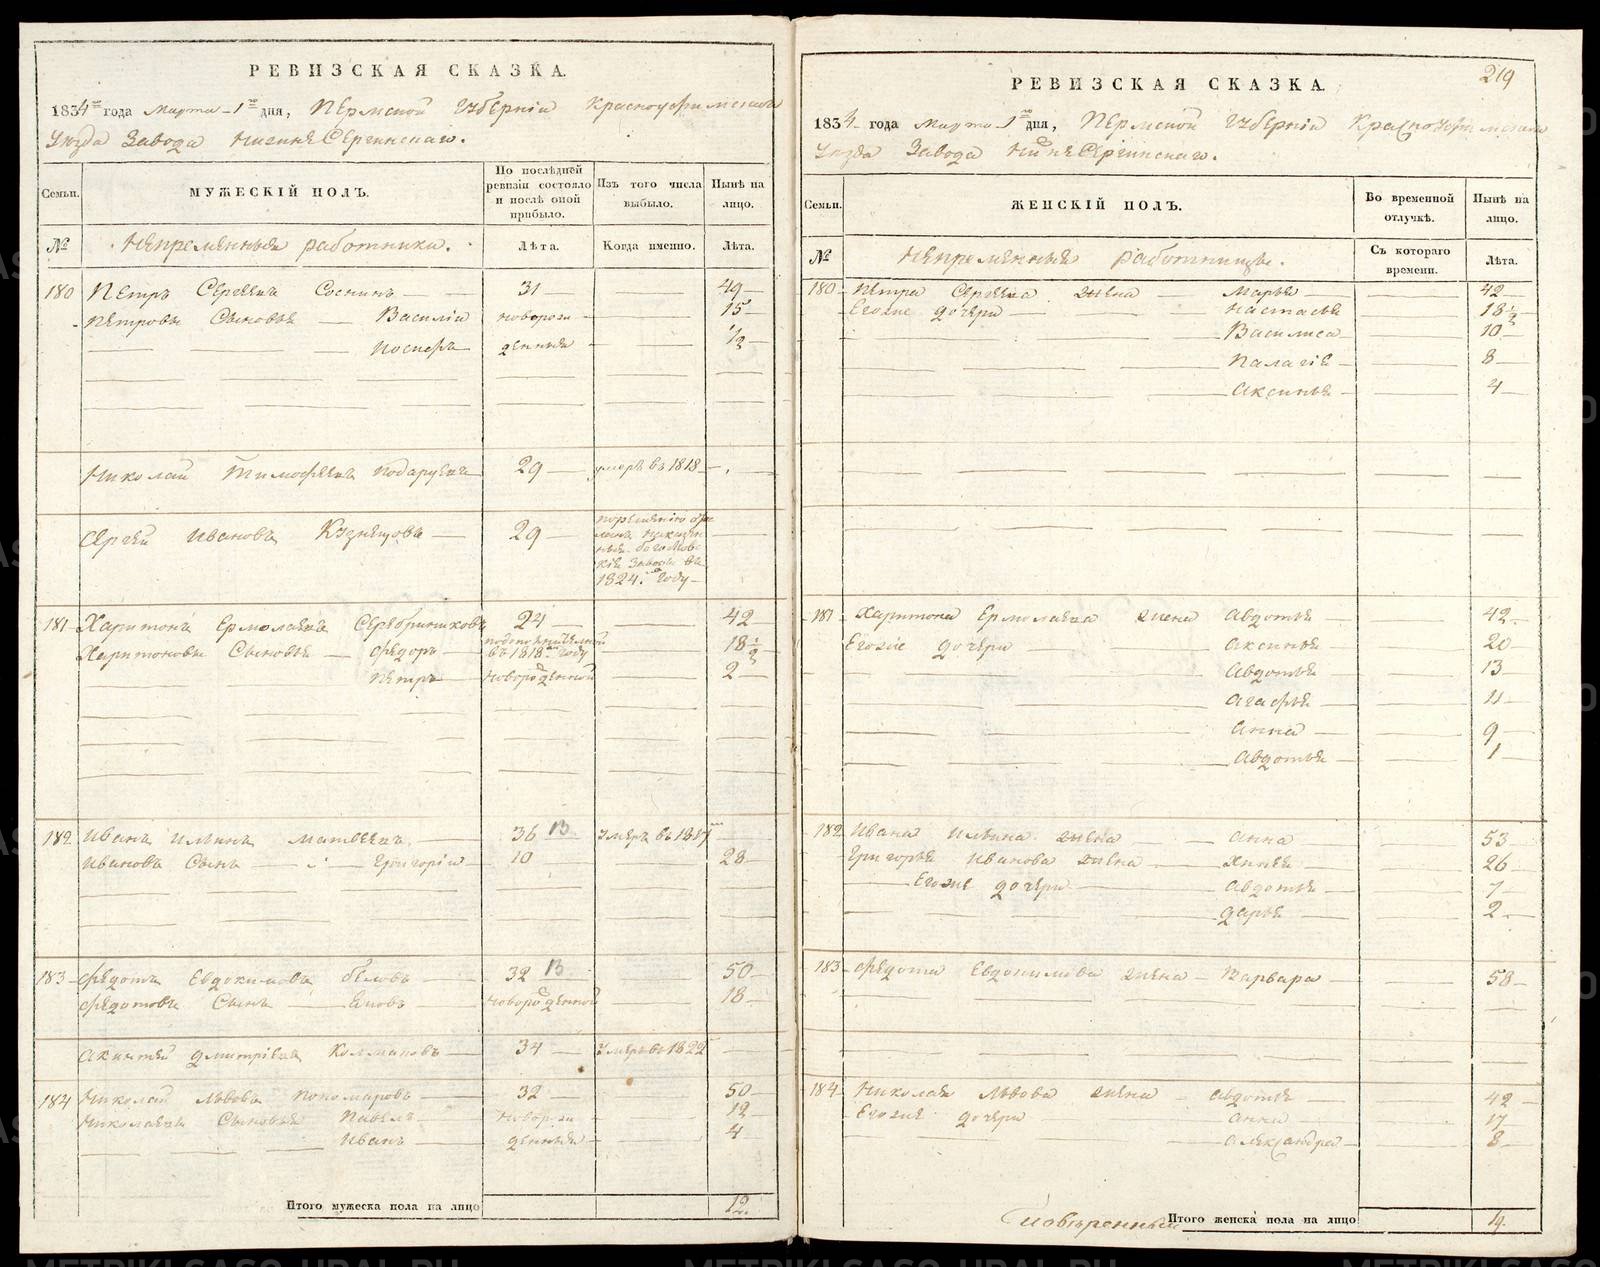 РЕВИЗСКАЯ СКАЗКА.
1834 го года Марта 1 го дня, Пермской Губерніи Красноуфимскаго
Уезда Завода Нижнѣ Сергинскаго.
Семьи.
МУЖЕСКІЙ ПОЛЪ.
По послѣдней ревизіи состояло и послѣ оной прибыло.
Изъ того числа выбыло.
Нынѣ на лицо.
№
Непременныя работники.
Лѣта.
Когда именно.
Лѣта.
180 Петръ Сергеевъ Соснинъ 31 49
Петровы Сыновья Василій новорож 15
Іосифъ денныя ½
Николай Тимофеевъ Подаруевъ 29 умеръ въ 1818
Сергей Ивановъ Кузнецовъ 29
1824 го году
181 Харитонъ Ермолаевъ Серебрениковъ 24 42
Харитоновы Сыновья Федоръ въ 1818 м году 18½
Петръ новорожденной 2
182 Иванъ Ильинъ Матвеевъ 36 13 умеръ въ 1817
Ивановъ Сынъ Григорій 10 28
183 Федотъ Евдокимовъ Беловъ 32 13 50
Федотовъ Сынъ новорожденной 18
Акинтей Дмитріевъ 34 умеръ въ 1822
184 Николай Львовъ Пономаровъ 32 50
Николаевы Сыновья Павелъ новорож 12
Иванъ денныя 4
Итого мужеска пола на лицо 12.
219
РЕВИЗСКАЯ СКАЗКА.
1834 года Марта 1 го дня, Пермской Губерніи Красноуфимскаго
Уезда Завода Нижнѣ Сергинскаго.
Семьи.
ЖЕНСКІЙ ПОЛЪ.
Во временной отлучкѣ.
Нынѣ на лицо.
№
Непременныя работницы.
Съ котораго времени.
Лѣта.
180 Петра Сергеева жена Марья 42
Егоже дочери Настасья 18½
Василиса 10
Палагія 8
Аксинья 4
181 Харитона Ермолаева жена Авдотья 42
Егоже дочери Аксинья 20
Авдотья 13
Агафья 11
Анна 9
Авдотья 1
182 Ивана Ильина жена Анна 53
Григорья Иванова жена 26
Егоже дочери Авдотья 7
Дарья 2
183 Федота Евдокимова жена Варвара 58
184 Николая Львова жена Авдотья 42
Егоже дочери Анна 17
Александра 8
Повѣренный
Итого женска пола на лицо
METRIKI.GASO-URAL.RU